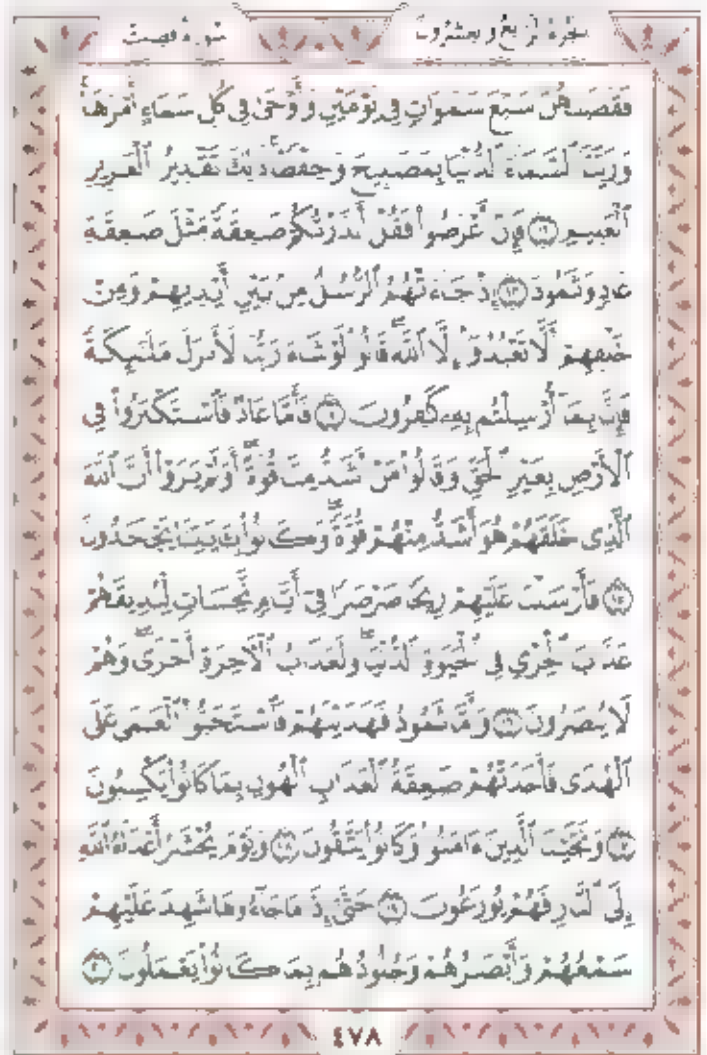 الجزء الرابع والعشرون
سورة فصلت
فَقَضَىٰهُنَّ سَبْعَ سَمَٰوَاتٍ فِي يَوْمَيْنِ وَأَوْحَىٰ فِي كُلِّ سَمَآءٍ أَمْرَهَا
وَزَيَّنَّا ٱلسَّمَآءَ ٱلدُّنْيَا بِمَصَٰبِيحَ وَحِفْظًا ذَٰلِكَ تَقْدِيرُ ٱلْعَزِيزِ
ٱلْعَلِيمِ ١٢ فَإِنْ أَعْرَضُوا۟ فَقُلْ أَنذَرْتُكُمْ صَٰعِقَةً مِّثْلَ صَٰعِقَةِ
عَادٍ وَثَمُودَ ١٣ إِذْ جَآءَتْهُمُ ٱلرُّسُلُ مِنۢ بَيْنِ أَيْدِيهِمْ وَمِنْ
خَلْفِهِمْ أَلَّا تَعْبُدُوٓا۟ إِلَّا ٱللَّهَ قَالُوا۟ لَوْ شَآءَ رَبُّنَا لَأَنزَلَ مَلَٰٓئِكَةً
فَإِنَّا بِمَآ أُرْسِلْتُم بِهِۦ كَٰفِرُونَ ١٤ فَأَمَّا عَادٌ فَٱسْتَكْبَرُوا۟ فِي
ٱلْأَرْضِ بِغَيْرِ ٱلْحَقِّ وَقَالُوا۟ مَنْ أَشَدُّ مِنَّا قُوَّةً أَوَلَمْ يَرَوْا۟ أَنَّ ٱللَّهَ
ٱلَّذِي خَلَقَهُمْ هُوَ أَشَدُّ مِنْهُمْ قُوَّةً وَكَانُوا۟ بِـَٔايَٰتِنَا يَجْحَدُونَ
١٥ فَأَرْسَلْنَا عَلَيْهِمْ رِيحًا صَرْصَرًا فِيٓ أَيَّامٍ نَّحِسَاتٍ لِّنُذِيقَهُمْ
عَذَابَ ٱلْخِزْيِ فِي ٱلْحَيَوٰةِ ٱلدُّنْيَا وَلَعَذَابُ ٱلْأَخِرَةِ أَخْزَىٰ وَهُمْ
لَا يُنصَرُونَ ١٦ وَأَمَّا ثَمُودُ فَهَدَيْنَٰهُمْ فَٱسْتَحَبُّوا۟ ٱلْعَمَىٰ عَلَى
ٱلْهُدَىٰ فَأَخَذَتْهُمْ صَٰعِقَةُ ٱلْعَذَابِ ٱلْهُونِ بِمَا كَانُوا۟ يَكْسِبُونَ
١٧ وَنَجَّيْنَا ٱلَّذِينَ ءَامَنُوا۟ وَكَانُوا۟ يَتَّقُونَ ١٨ وَيَوْمَ يُحْشَرُ أَعْدَآءُ ٱللَّهِ
إِلَى ٱلنَّارِ فَهُمْ يُوزَعُونَ ١٩ حَتَّىٰٓ إِذَا مَا جَآءُوهَا شَهِدَ عَلَيْهِمْ
سَمْعُهُمْ وَأَبْصَٰرُهُمْ وَجُلُودُهُم بِمَا كَانُوا۟ يَعْمَلُونَ ٢٠
٤٧٨